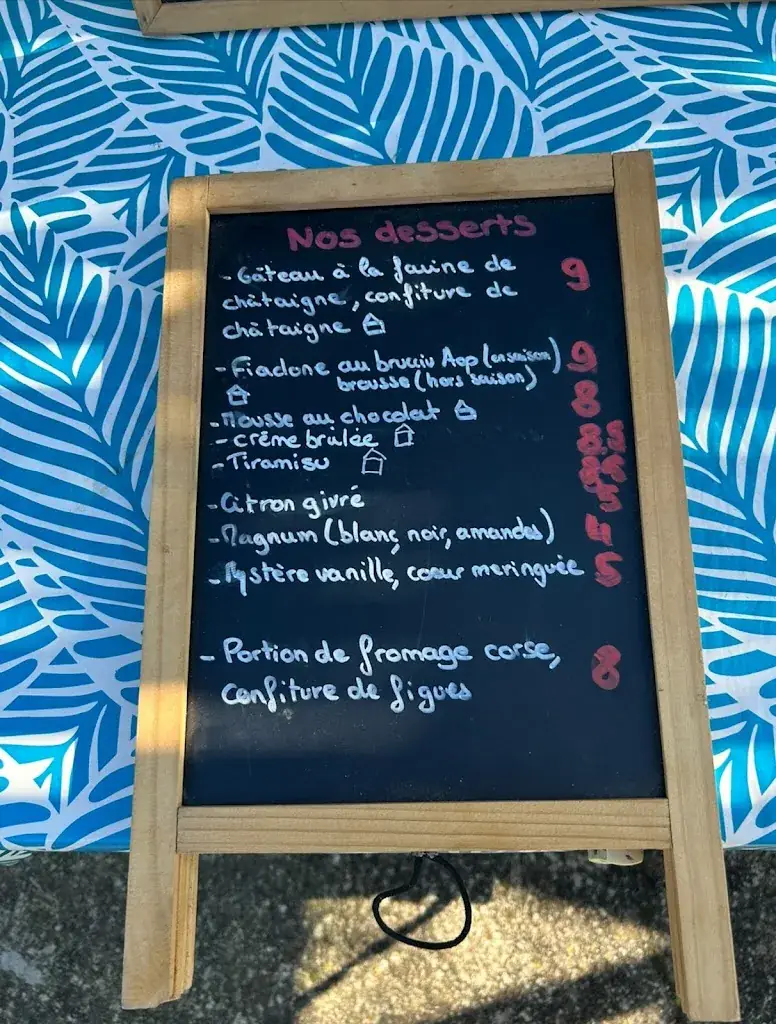 Nos desserts
- Gâteau à la farine de 9
châtaigne, confiture de
châtaigne
- Fiadone au brucciu Aop (en saison) 9
brousse (hors saison)
- Mousse au chocolat 8
- crème brûlée 8.5
- Tiramisu 8.5
- Citron givré 5
- Magnum (blanc, noir, amandes) 5
- Mystère vanille, coeur meringuée 5
- Portion de fromage corse, 8
confiture de figues